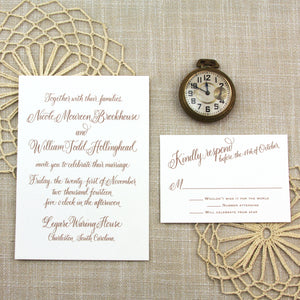 Together with their families,
Nicole Maureen Brookhouse
and
William Todd Hollingshead
invite you to celebrate their marriage
Friday, the twenty first of November
two thousand fourteen
five o'clock in the afternoon
Legare Waring House
Charleston, South Carolina
Kindly respond
before the 21st of October
M
Wouldn't miss it for the world
Number attending
Will celebrate from afar